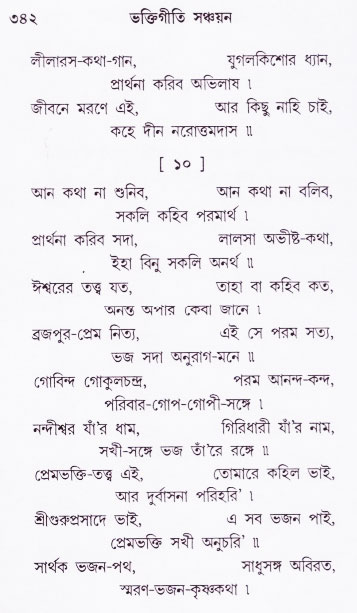 ৩৪২ ভক্তিগীতি সঞ্চয়ন
লীলারস-কথা-গান, যুগলকিশোর ধ্যান,
প্রার্থনা করিব অভিলাষ।
জীবনে মরণে এই, আর কিছু নাহি চাই,
কহে দীন নরোত্তমদাস॥
[ ১০ ]
আন কথা না শুনিব, আন কথা না বলিব,
সকলি কহিব পরমার্থ।
প্রার্থনা করিব সদা, লালসা অভীষ্ট-কথা,
ইহা বিনু সকলি অনর্থ॥
ঈশ্বরের তত্ত্ব যত, তাহা বা কহিব কত,
অনন্ত অপার কেবা জানে।
ব্রজপুর-প্রেম নিত্য, এই সে পরম সত্য,
ভজ সদা অনুরাগ-মনে॥
গোবিন্দ গোকুলচন্দ্র, পরম আনন্দ-কন্দ,
পরিবার-গোপ-গোপী-সঙ্গে।
নন্দীশ্বর যাঁ'র ধাম, গিরিধারী যাঁ'র নাম,
সখী-সঙ্গে ভজ তাঁ'রে রঙ্গে॥
প্রেমভক্তি-তত্ত্ব এই, তোমারে কহিল ভাই,
আর দুর্বাসনা পরিহরি'।
শ্রীগুরুপ্রসাদে ভাই, এ সব ভজন পাই,
প্রেমভক্তি সখী অনুচরি'॥
সার্থক ভজন-পথ, সাধুসঙ্গ অবিরত,
স্মরণ-ভজন-কৃষ্ণকথা।